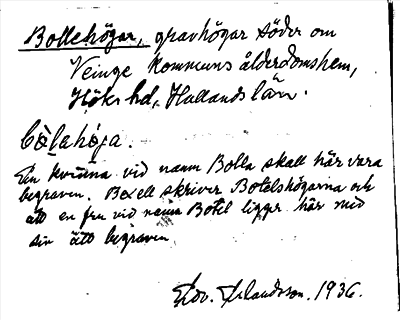 Bollehögar, gravhögar söder om
Veinge kommuns ålderdomshem,
Höks hd, Hallands län.
bòlahøja.
En kvinna vid namn Bolla skall här vara
begraven. Bexell skriver Botelshögarna och
att en fru vid namn Botel ligger här med
sin ätt begraven
Edv. Erlandsson. 1936.